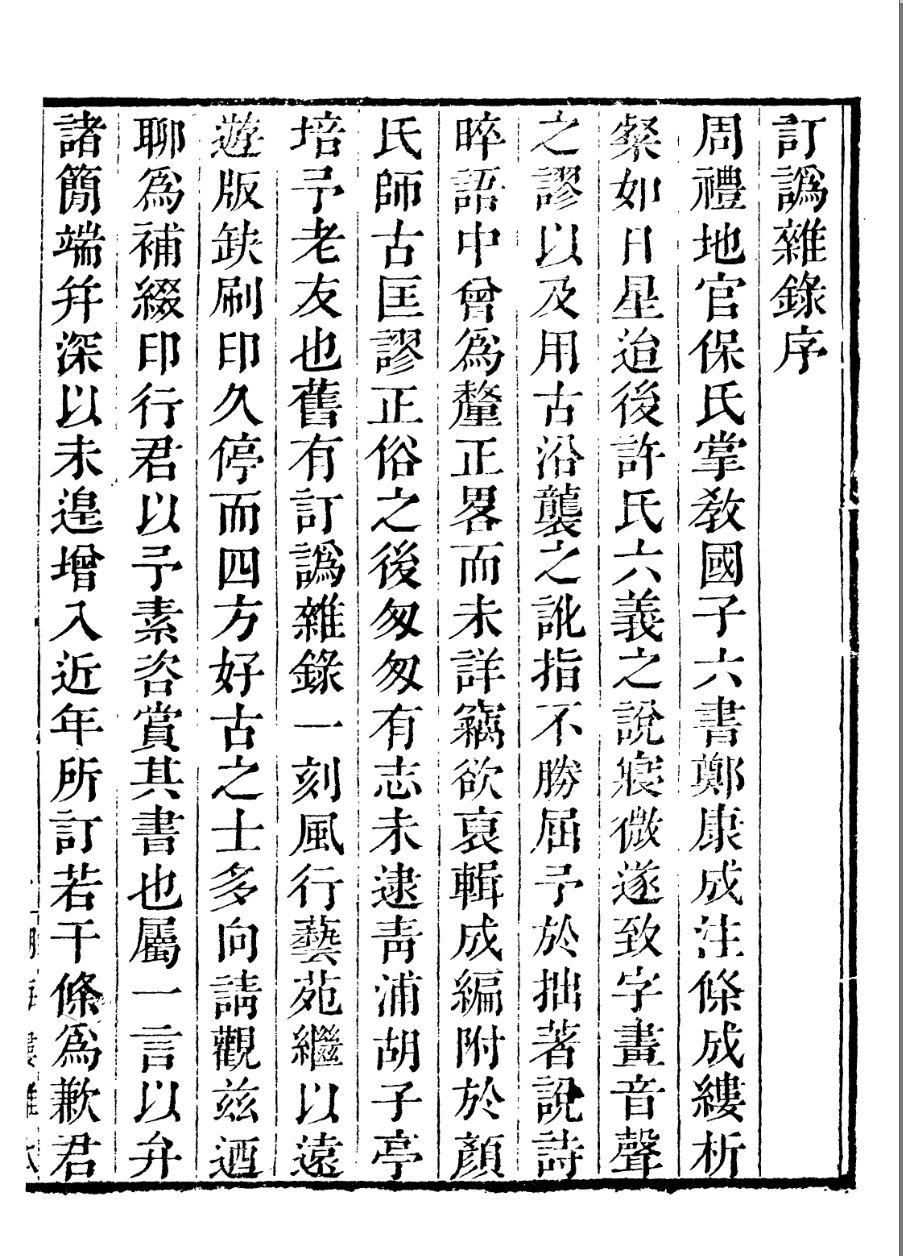 訂譌雜錄序
周禮地官保氏掌教國子六書鄭康成注條成縷析
粲如日星迨後許氏六義之說寖微遂致字畫音聲
之謬以及用古沿襲之訛指不勝屈予於拙著說詩
晬語中曾爲釐正畧而未詳竊欲裒輯成編附於顏
氏師古匡謬正俗之後匆匆有志未逮靑浦胡子亭
培予老友也舊有訂譌雜錄一刻風行藝苑繼以遠
遊版缺刷印久停而四方好古之士多向請觀兹迺
聊爲補綴印行君以予素咨賞其書也屬一言以弁
諸簡端幷深以未遑增入近年所訂若干條爲歉君